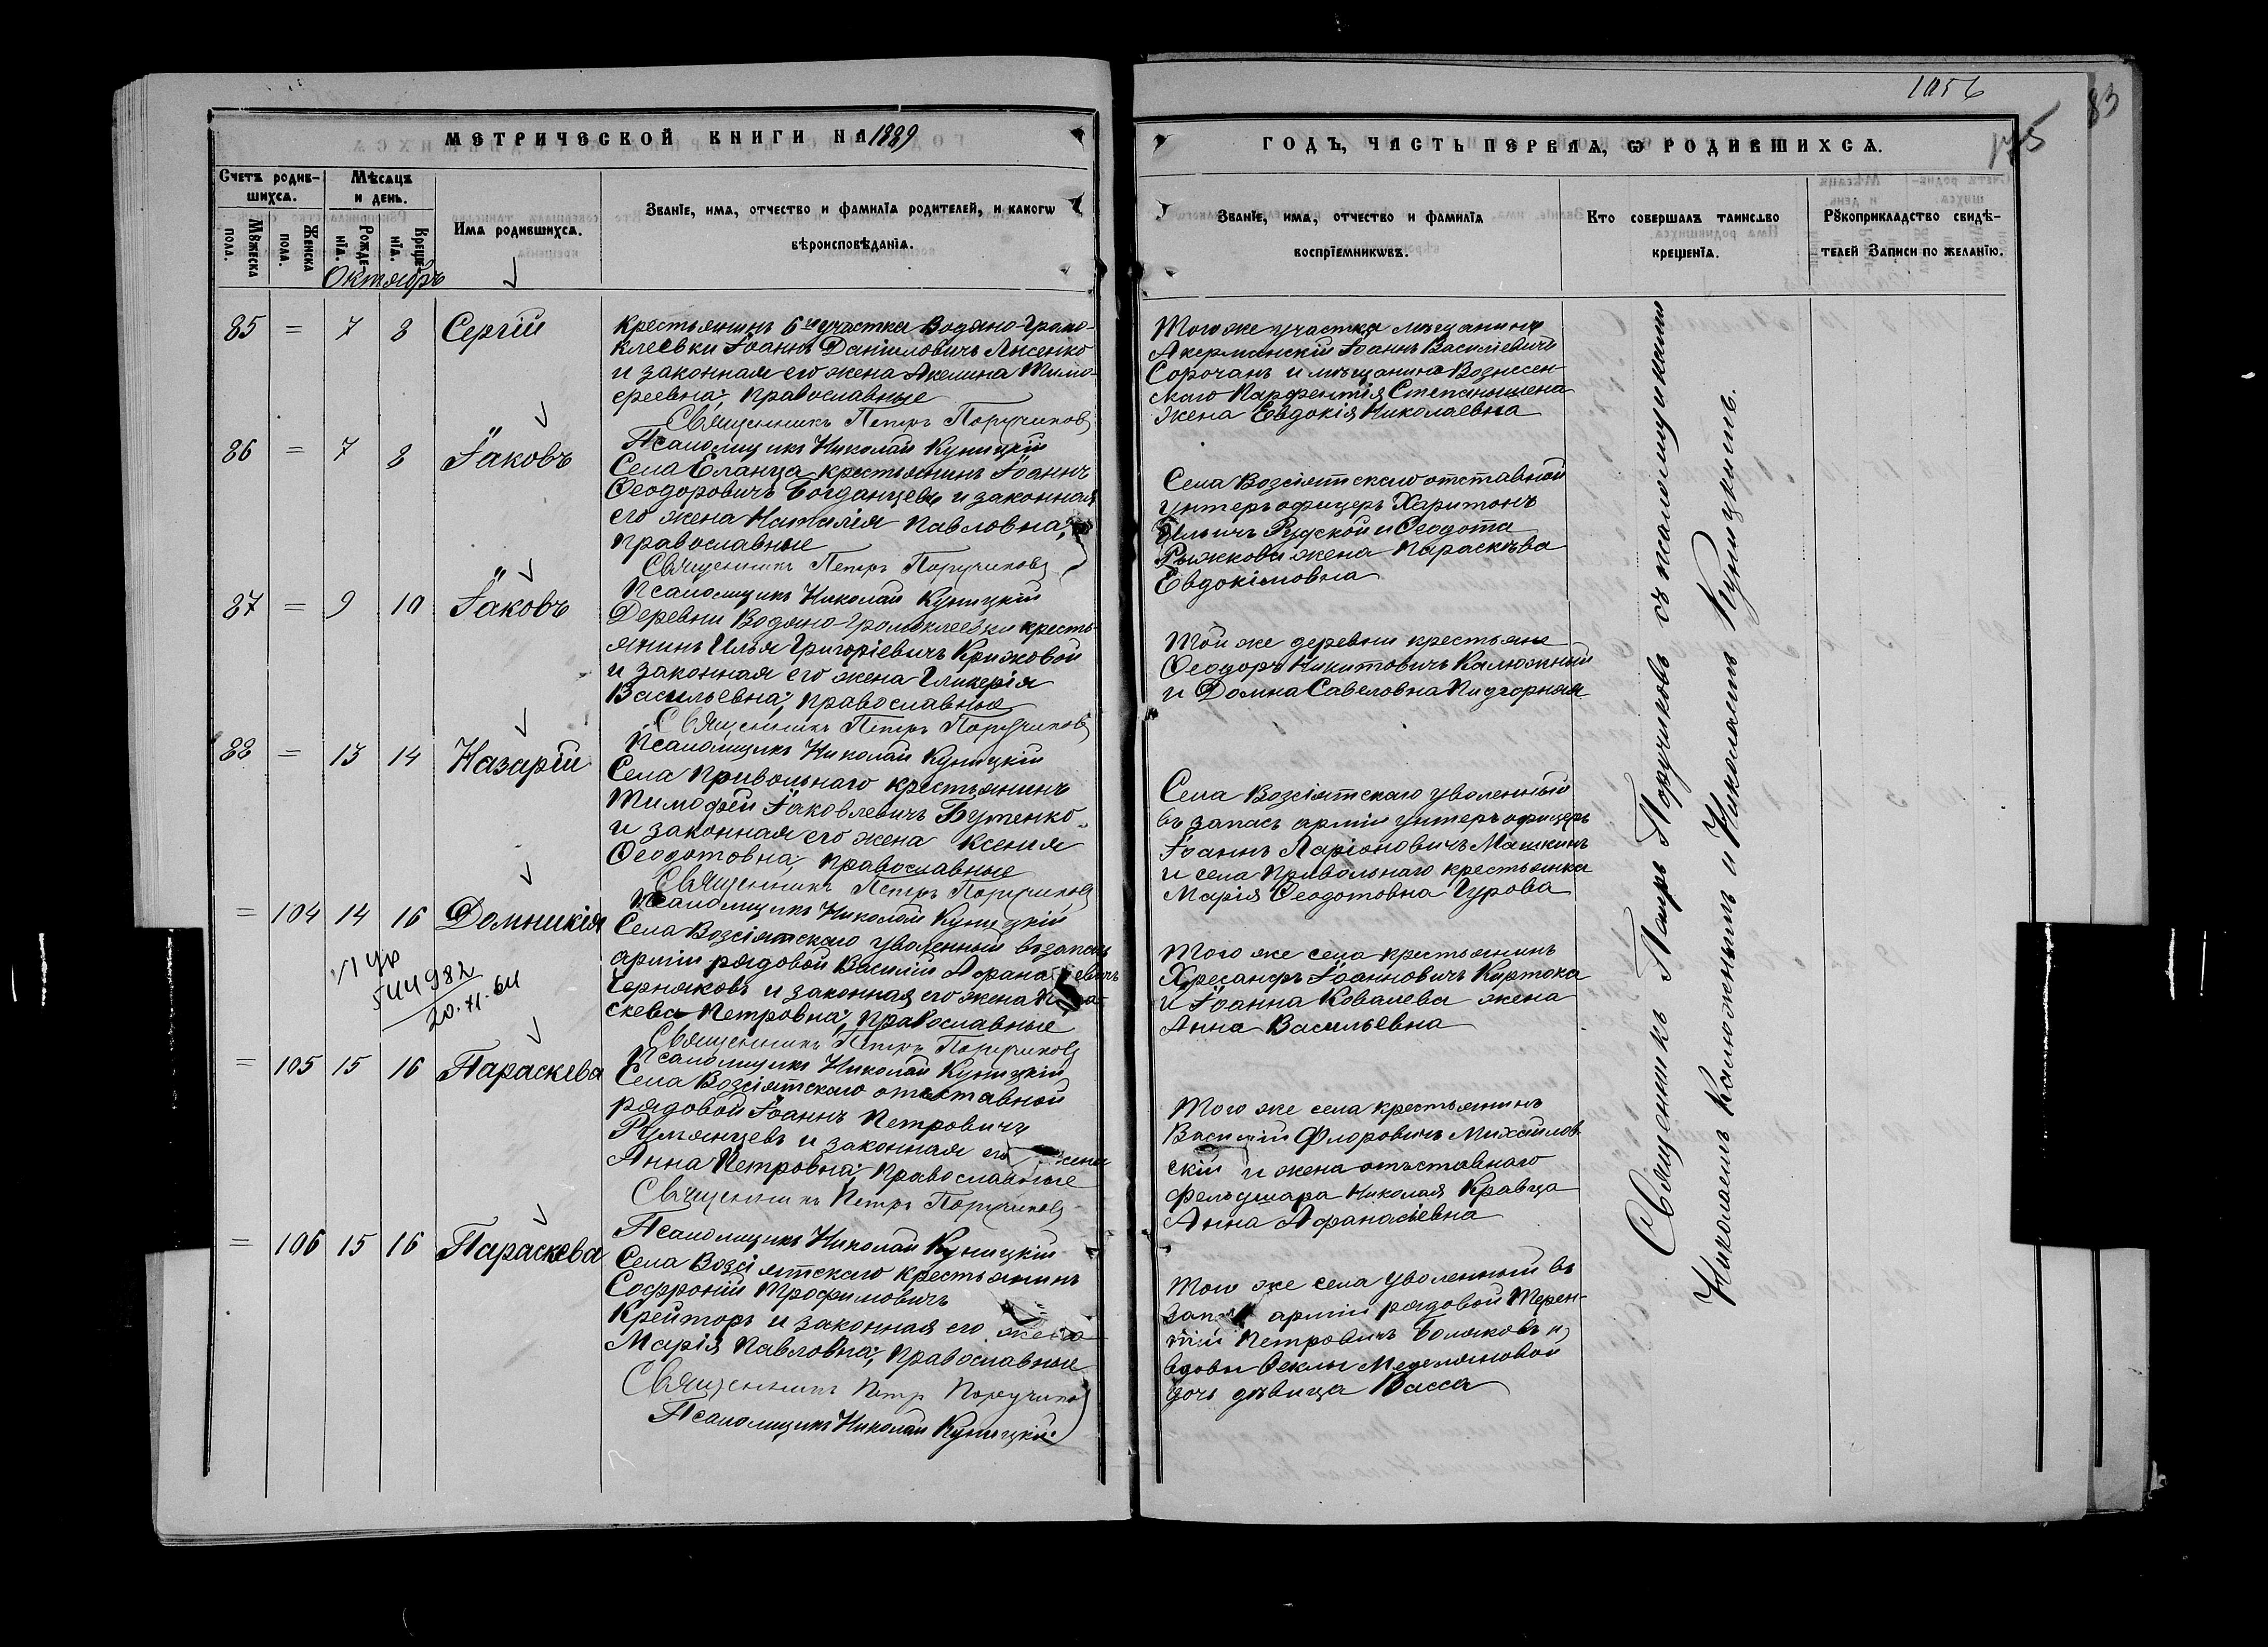 1056
83
МЕТРИЧЕСКОЙ КНИГИ НА 1889
ГОДЪ, ЧАСТЬ ПЕРВАѦ, Ѡ РОДИВШИХСѦ.
Счетъ родив-
шихсѧ.
Мѣсѧцъ
и день.
Имѧ родившихсѧ.
Званїе, имѧ, отчество и фамилїѧ родителей, и какогѡ
вѣроисповѣданїѧ.
Мꙋжеска
пола.
Женска
пола.
Рожде
нїѧ.
Креще
нїѧ.
Званїе, имѧ, отчество и фамилїѧ
воспрїемникѡвъ.
Кто совершалъ таинство
крещенїѧ.
Рꙋкоприкладство свидѣ-
телей Записи по желанїю.
Октябрь
85 = 7 8 Сергій
Крестьянинъ 6го участка Водяно-Громо-
клеевки Іоаннъ Даніиловичъ Лысенко
и законная его жена Акелина Тимо-
феевна; православные
Священникъ Петръ Поручиковъ
Псаломщикъ Николай Куницкій
Тогоже участка мѣщанинъ
Акерманскій Іоаннъ Василіевичъ
Сорочанъ и мѣщанина Вознесен-
скаго Парфентія Степанишена
жена Евдокія Николаевна
86 = 7 8 Іаковъ
Села Еланца крестьянинъ Іоаннъ
Ѳеодоровичъ Богданцевъ и законная
его жена Наталія Павловна;
православные
Священникъ Петръ Поручиковъ
Псаломщикъ Николай Куницкій
Села Возсіятскаго отставной
унтеръ офицеръ Харитонъ
Ильичъ Рудской и Ѳеодота
Рыжкова жена Параскѣва
Евдокимовна
87 = 9 10 Іаковъ
Деревни Водяно-Громоклеевки кресть-
янинъ Илья Григоріевичъ Крижовой
и законная его жена Гликерія
Васильевна; православные
Священникъ Петръ Поручиковъ
Псаломщикъ Николай Куницкій
Той же деревни крестьяне
Ѳеодоръ Никитовичъ Калюжный
и Домна Савеловна Пидгорная
88 = 13 14 Назарій
Села Привольнаго крестьянинъ
Тимофей Іаковлевичъ Бутенко
и законная его жена Ксенія
Ѳеодотовна; православные
Священникъ Петръ Поручиковъ
Псаломщикъ Николай Куницкій
Села Возсіятскаго уволенный
въ запасъ арміи унтеръ офицеръ
Іоаннъ Ларіоновичъ Машкинъ
и села Привольнаго крестьянка
Марія Ѳеодотовна Гурова
= 104 14 16 Домникія
544982
20.XI.64
Села Возсіятскаго уволенный въ запасъ
арміи рядовой Василій
Черняковъ и законная его жена
скева Петровна; православные
Священникъ Петръ Поручиковъ
Псаломщикъ Николай Куницкій
Того же села крестьянинъ
Хрисанфъ Іоанновичъ Киртока
и Іоанна Ковалева жена
Анна Васильевна
= 105 15 16 Параскева
Села Возсіятскаго отставной
рядовой Іоаннъ Петровичъ
Румянцевъ и законная его жена
Анна Петровна; православные
Священникъ Петръ Поручиковъ
Псаломщикъ Николай Куницкій
Того же села крестьянинъ
Василій Флоровичъ Михайлов-
скій и жена отъставнаго
фельдшара Николая Кравца
Анна Афанасіевна
= 106 15 16 Параскева
Села Возсіятскаго крестьянинъ
Софроній Трофимовичъ
Крейторъ и законная его жена
Марія Павловна; православные
Священникъ Петръ Поручиковъ
Псаломщикъ Николай Куницкій
Того же села уволенный въ
арміи рядовой Терен-
тій Петровичъ Боляковъ и
вдовы Ѳеклы
дочь дѣвица Васса
Священникъ Петръ Поручиковъ съ псаломщиками
Николаемъ Калюжнымъ и Николаемъ Куницкимъ.